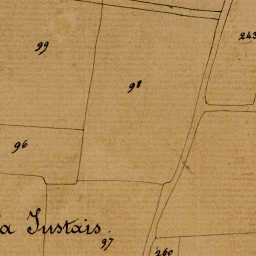 99
98
243
96
a Justais.
97
260